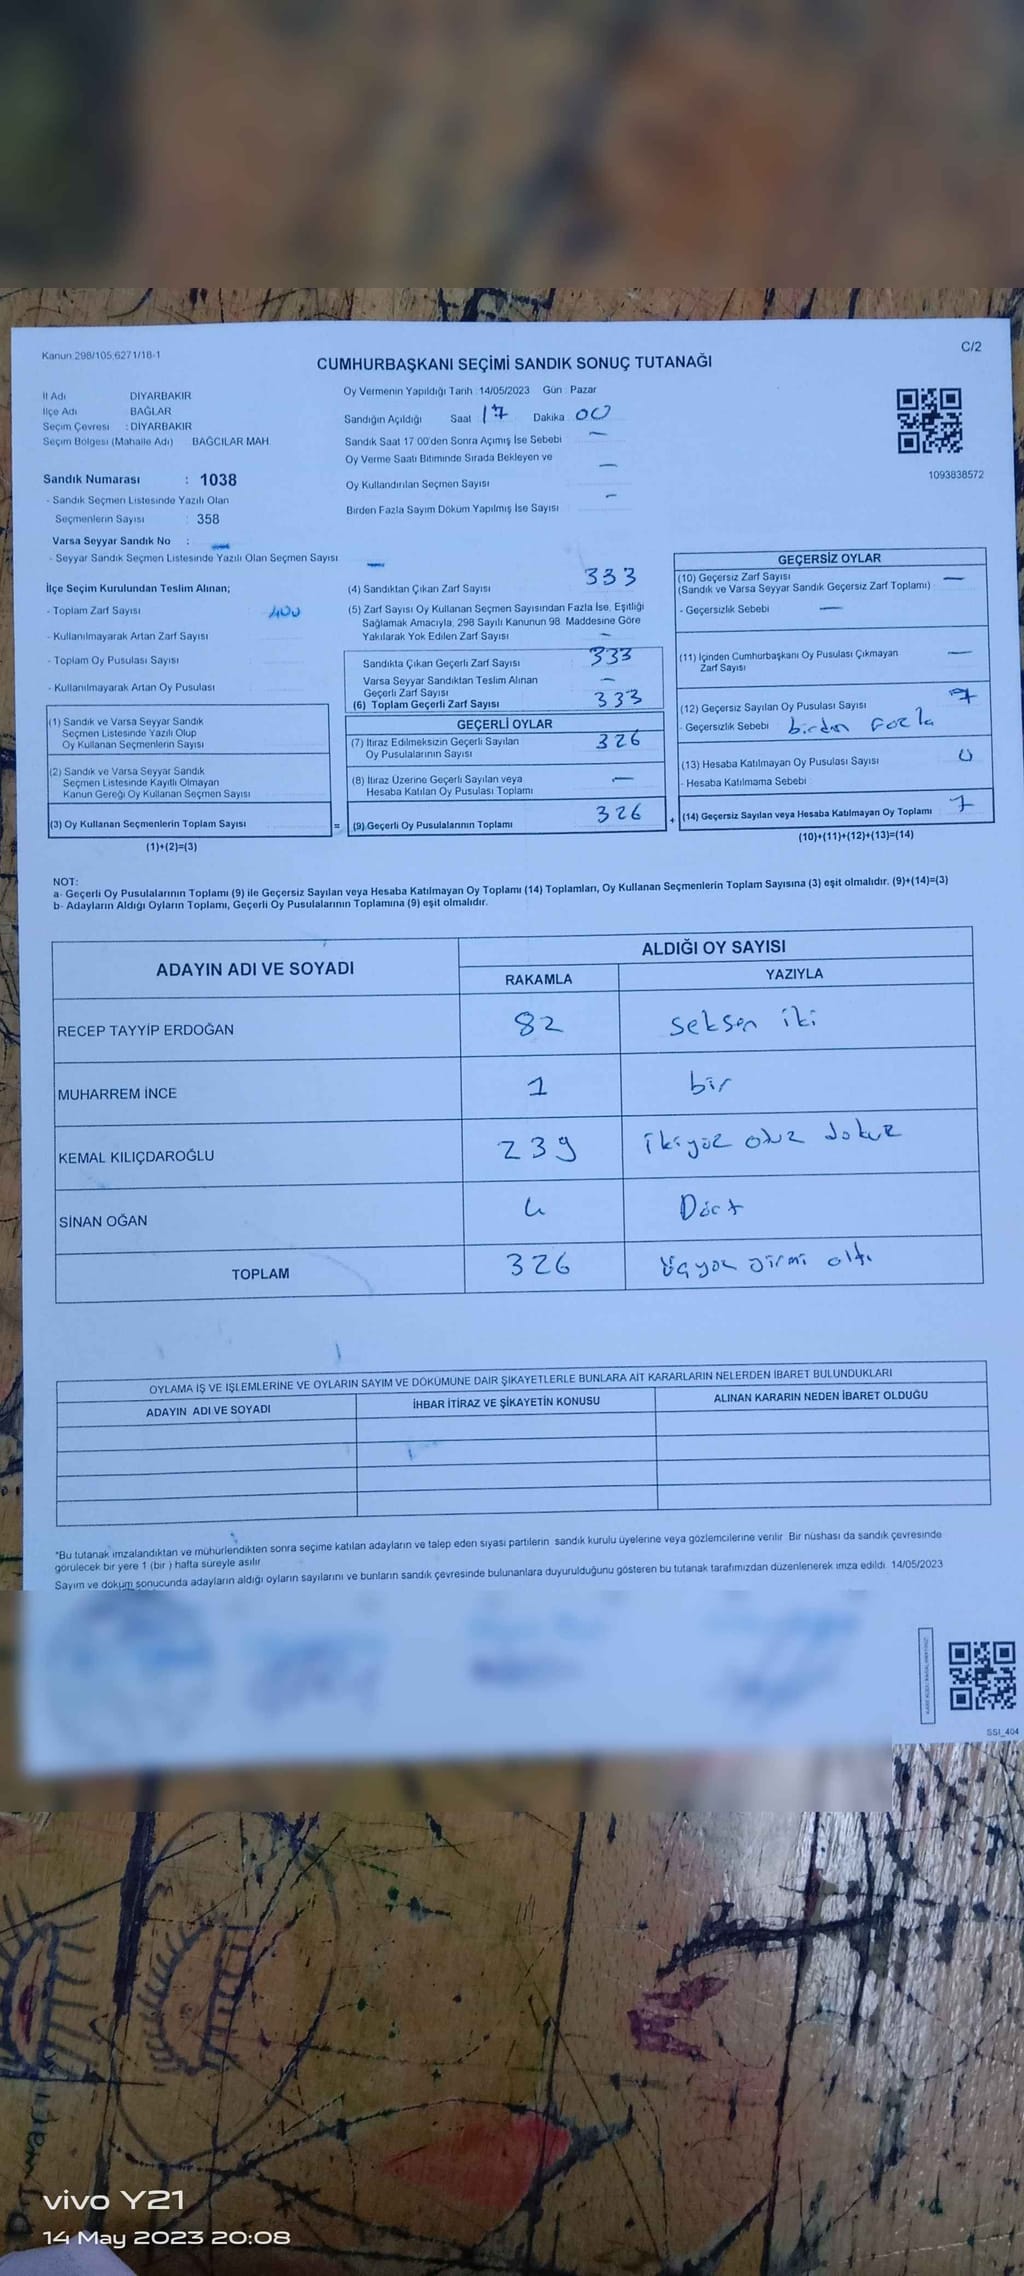 Kanun 298/105,6271/18-1
C/2
CUMHURBAŞKANI SEÇİMİ SANDIK SONUÇ TUTANAĞI
İl Adı DİYARBAKIR
İlçe Adı BAĞLAR
Seçim Çevresi : DİYARBAKIR
Seçim Bölgesi (Mahalle Adı) BAĞCILAR MAH.
Sandık Numarası : 1038
- Sandık Seçmen Listesinde Yazılı Olan
Seçmenlerin Sayısı : 358
Varsa Seyyar Sandık No : —
- Seyyar Sandık Seçmen Listesinde Yazılı Olan Seçmen Sayısı —
Oy Vermenin Yapıldığı Tarih : 14/05/2023 Gün : Pazar
Sandığın Açıldığı Saat 17 Dakika 00
Sandık Saat 17:00'den Sonra Açımış İse Sebebi —
Oy Verme Saati Bitiminde Sırada Bekleyen ve
Oy Kullandırılan Seçmen Sayısı —
Birden Fazla Sayım Döküm Yapılmış İse Sayısı —
1093838572
İlçe Seçim Kurulundan Teslim Alınan;
- Toplam Zarf Sayısı 400
- Kullanılmayarak Artan Zarf Sayısı
- Toplam Oy Pusulası Sayısı
- Kullanılmayarak Artan Oy Pusulası
(1) Sandık ve Varsa Seyyar Sandık
Seçmen Listesinde Yazılı Olup
Oy Kullanan Seçmenlerin Sayısı
(2) Sandık ve Varsa Seyyar Sandık
Seçmen Listesinde Kayıtlı Olmayan
Kanun Gereği Oy Kullanan Seçmen Sayısı
(3) Oy Kullanan Seçmenlerin Toplam Sayısı
(1)+(2)=(3)
(4) Sandıktan Çıkan Zarf Sayısı 333
(5) Zarf Sayısı Oy Kullanan Seçmen Sayısından Fazla İse, Eşitliği
Sağlamak Amacıyla, 298 Sayılı Kanunun 98. Maddesine Göre
Yakılarak Yok Edilen Zarf Sayısı —
Sandıkta Çıkan Geçerli Zarf Sayısı 333
Varsa Seyyar Sandıktan Teslim Alınan
Geçerli Zarf Sayısı —
(6) Toplam Geçerli Zarf Sayısı 333
GEÇERLİ OYLAR
(7) İtiraz Edilmeksizin Geçerli Sayılan
Oy Pusulalarının Sayısı 326
(8) İtiraz Üzerine Geçerli Sayılan veya
Hesaba Katılan Oy Pusulası Toplamı —
= (9) Geçerli Oy Pusulalarının Toplamı 326
GEÇERSİZ OYLAR
(10) Geçersiz Zarf Sayısı —
(Sandık ve Varsa Seyyar Sandık Geçersiz Zarf Toplamı)
- Geçersizlik Sebebi —
(11) İçinden Cumhurbaşkanı Oy Pusulası Çıkmayan
Zarf Sayısı —
(12) Geçersiz Sayılan Oy Pusulası Sayısı 7
- Geçersizlik Sebebi birden fazla
(13) Hesaba Katılmayan Oy Pusulası Sayısı 0
- Hesaba Katılmama Sebebi
+ (14) Geçersiz Sayılan veya Hesaba Katılmayan Oy Toplamı 7
(10)+(11)+(12)+(13)=(14)
NOT:
a- Geçerli Oy Pusulalarının Toplamı (9) ile Geçersiz Sayılan veya Hesaba Katılmayan Oy Toplamı (14) Toplamları, Oy Kullanan Seçmenlerin Toplam Sayısına (3) eşit olmalıdır. (9)+(14)=(3)
b- Adayların Aldığı Oyların Toplamı, Geçerli Oy Pusulalarının Toplamına (9) eşit olmalıdır.
ADAYIN ADI VE SOYADI ALDIĞI OY SAYISI
RAKAMLA YAZIYLA
RECEP TAYYİP ERDOĞAN 82 seksen iki
MUHARREM İNCE 1 bir
KEMAL KILIÇDAROĞLU 239 ikiyüz otuz dokuz
SİNAN OĞAN 4 Dört
TOPLAM 326 üçyüz yirmi altı
OYLAMA İŞ VE İŞLEMLERİNE VE OYLARIN SAYIM VE DÖKÜMÜNE DAİR ŞİKAYETLERLE BUNLARA AİT KARARLARIN NELERDEN İBARET BULUNDUKLARI
ADAYIN ADI VE SOYADI İHBAR İTİRAZ VE ŞİKAYETİN KONUSU ALINAN KARARIN NEDEN İBARET OLDUĞU
*Bu tutanak imzalandıktan ve mühürlendikten sonra seçime katılan adayların ve talep eden siyasi partilerin sandık kurulu üyelerine veya gözlemcilerine verilir. Bir nüshası da sandık çevresinde
görülecek bir yere 1 (bir ) hafta süreyle asılır.
Sayım ve döküm sonucunda adayların aldığı oyların sayılarını ve bunların sandık çevresinde bulunanlara duyurulduğunu gösteren bu tutanak tarafımızdan düzenlenerek imza edildi. 14/05/2023
SSI_404
vivo Y21
14 May 2023 20:08